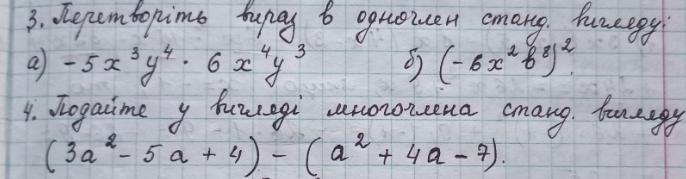 3. Перетворіть вираз в одночлен станд. вигляду:
а) -5x³y⁴ · 6x⁴y³ б) (-6x²b⁸)².
4. Подайте у вигляді многочлена станд. вигляду
(3a² - 5a + 4) - (a² + 4a - 7).